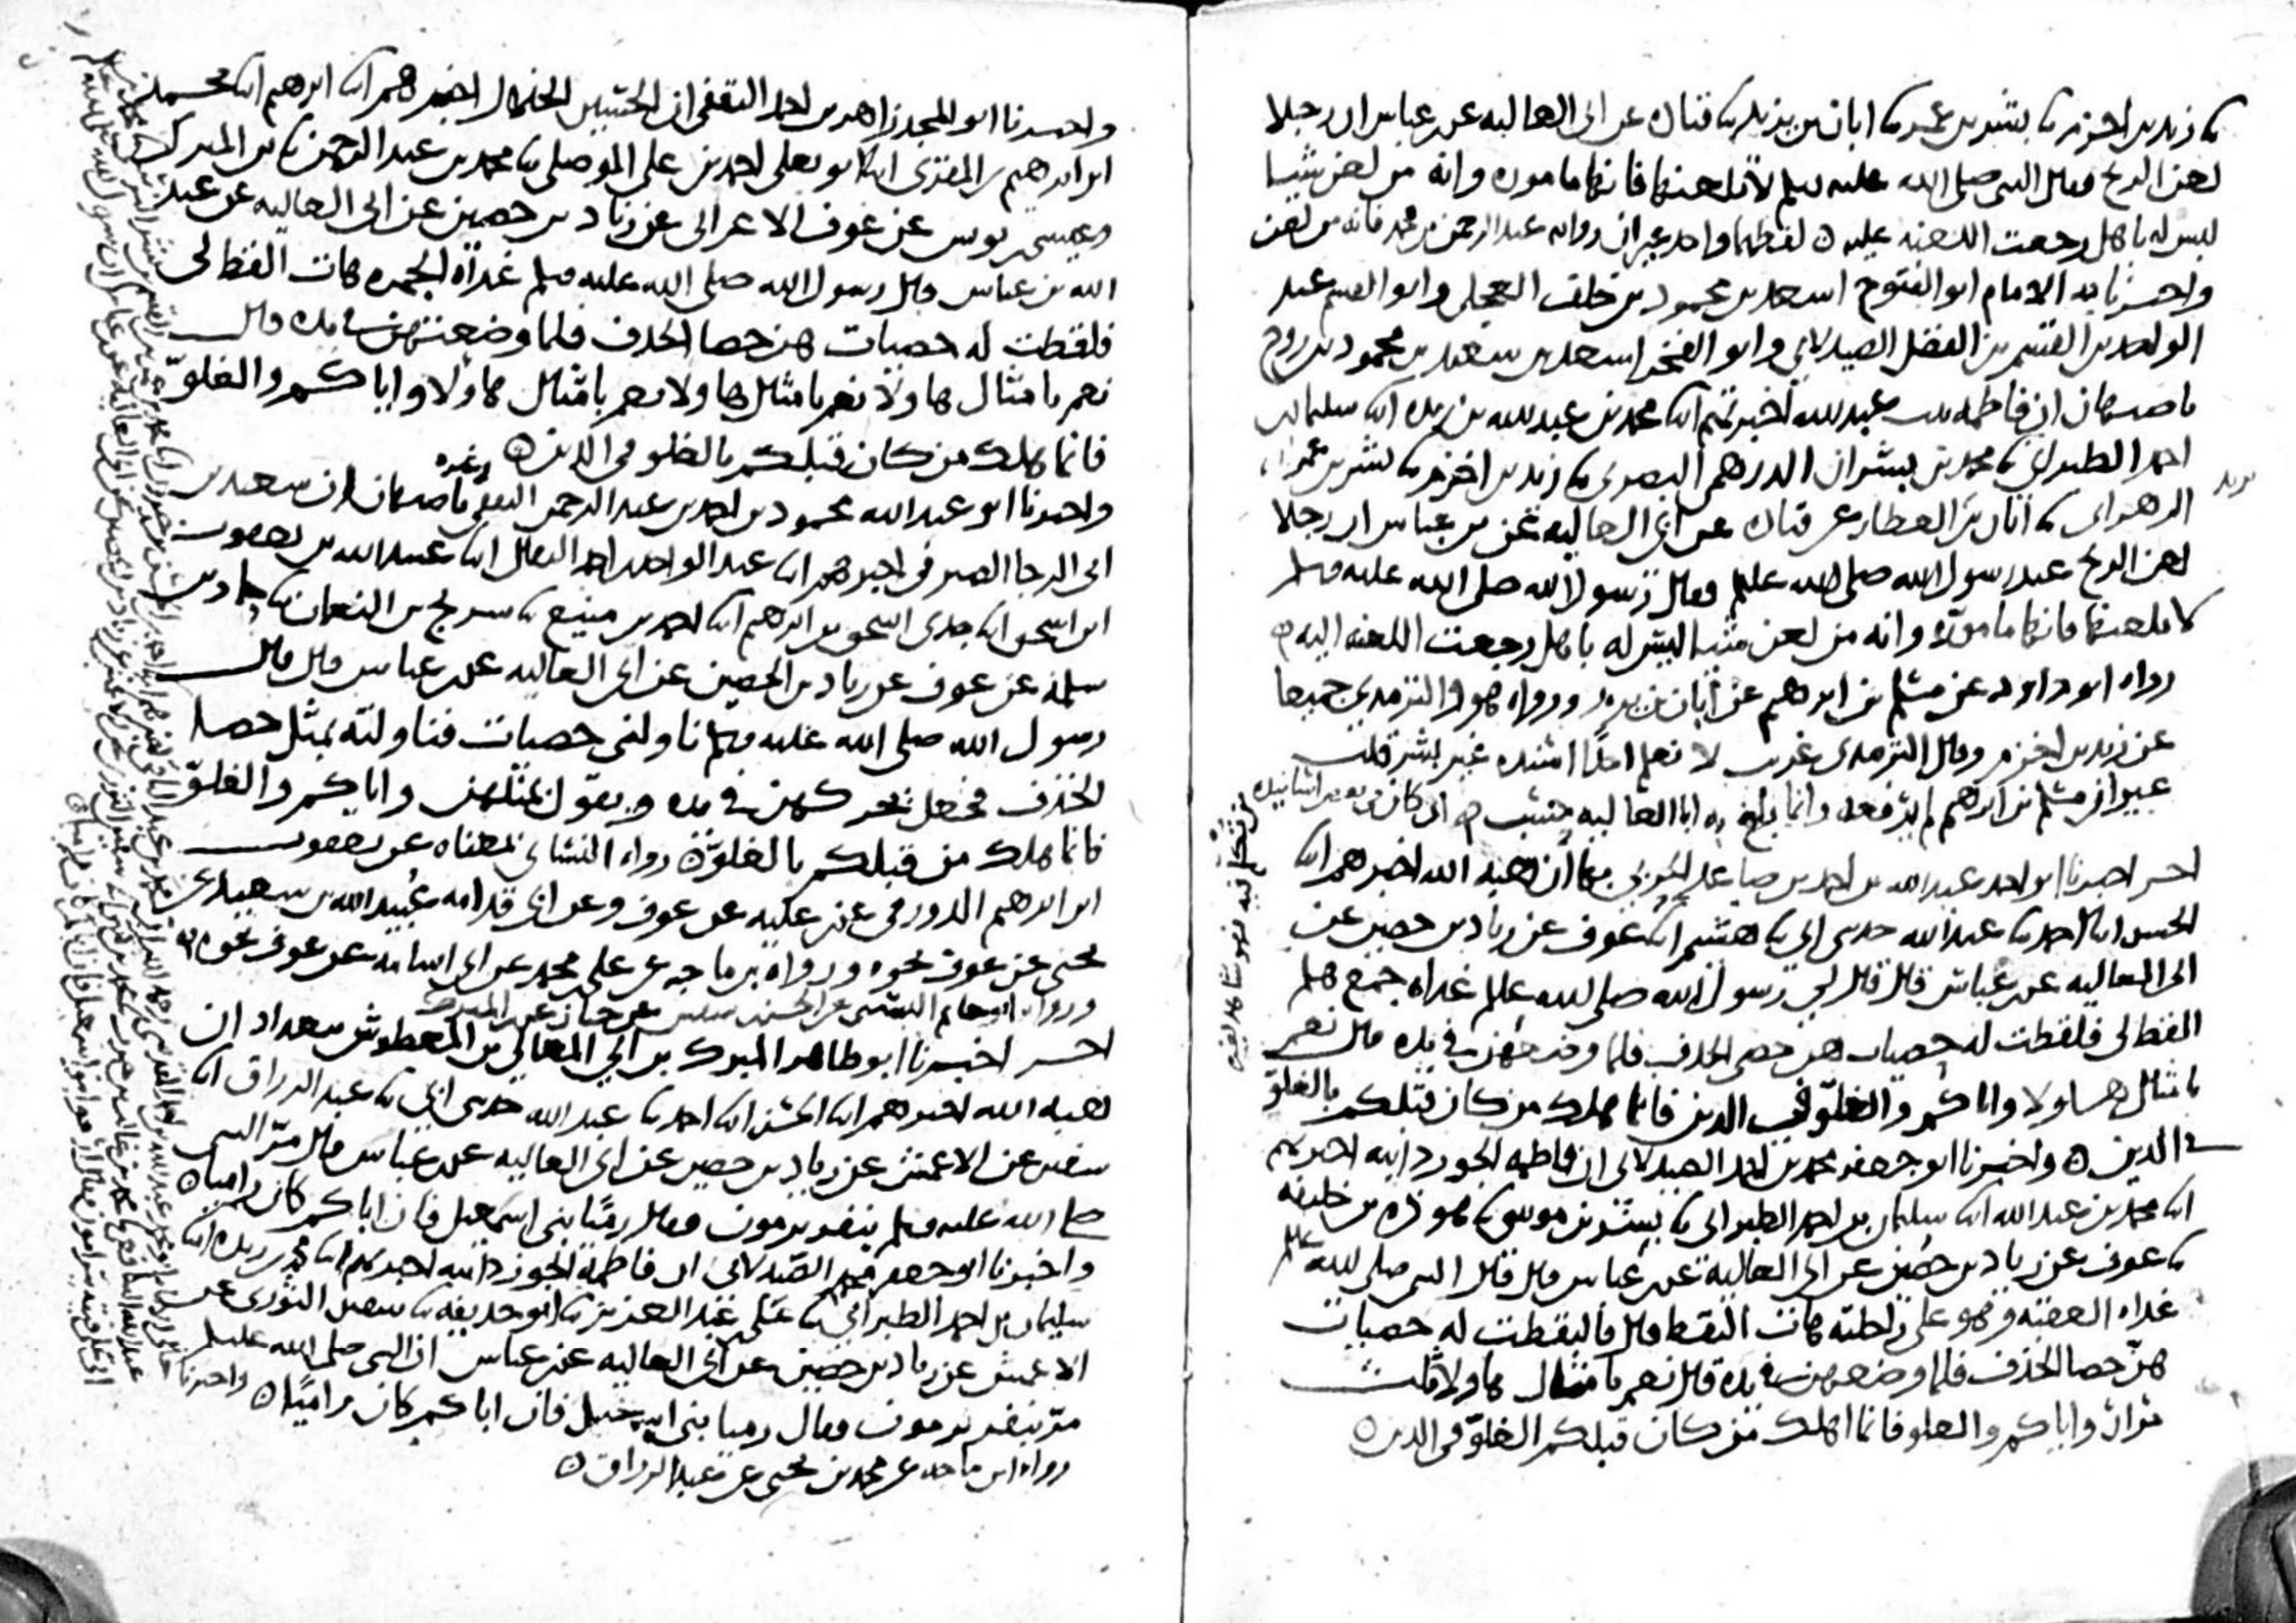 زيد بن اخزم بشر بن عمر ابان بن يزيد قتاده عن ابي العاليه عن ابن عباس ان رجلا
لعن الريح فقال النبي صلى الله عليه وسلم لا تلعنها فانها ماموره وانه من لعن شيئا
ليس له باهل رجعت اللعنه عليه لفظهما واحد غير ان روايه عبد الرحمن بن محمد فانه من لعن
واخبرنا به الامام ابو الفتوح اسعد بن محمود بن خلف العجلي وابو القسم عبد
الواحد بن القسم بن الفضل الصيدلاني وابو الفخر اسعد بن سعيد بن محمود بن روح
باصبهان ان فاطمه بنت عبد الله اخبرتهم ابنا محمد بن عبد الله بن ريذه ابنا سليمان بن
احمد الطبراني محمد بن بشران الدرهمي البصري زيد بن اخزم بشر بن عمر
الزهراني ابان بن العطار عن قتاده عن ابي العاليه عن بن عباس ان رجلا
يزيد
لعن الريح عند رسول الله صلى الله عليه وسلم فقال رسول الله صلى الله عليه وسلم
لا تلعنها فانها ماموره وانه من لعن شيئا ليس له باهل رجعت اللعنه اليه
رواه ابو داود عن مسلم بن ابرهيم عن ابان بن يزيد ورواه هو والترمذي جميعا
عن زيد بن اخزم وقال الترمذي غريب لا نعلم احدا اسنده غير بشر قلت
غير ان مسلم بن ابرهيم لم يرفعه وانما بلغ به ابا العاليه حسب
اخر اخبرنا ابو احمد عبد الله بن احمد بن صاعد الحربي بها ان هبه الله اخبرهم ابنا
الحسن ابنا احمد عبد الله حدثني ابي هشيم ابنا عوف عن زياد بن حصين عن
ابي العاليه عن ابن عباس قال قال لي رسول الله صلى الله عليه وسلم غداه جمع هلم
القط لي فلقطت له حصيات هن حصى الخذف فلما وضعهن في يده قال نعم
بامثال هاولا واياكم والغلو في الدين فانما هلك من كان قبلكم بالغلو
في الدين واخبرنا ابو جعفر محمد بن احمد الصيدلاني ان فاطمه الجوزدانيه اخبرتهم
ابنا محمد بن عبد الله ابنا سليمان بن احمد الطبراني بشر بن موسى هوذه بن خليفه
عوف عن زياد بن حصين عن ابي العاليه عن ابن عباس قال قال النبي صلى الله عليه وسلم
غداه العقبه وهو على راحلته هات القط قال فالتقطت له حصيات
هن حصا الخذف فلما وضعهن في يده قال نعم بامثال هاولا ثلث
مرات واياكم والغلو فانما اهلك من كان قبلكم الغلو في الدين
واخبرنا ابو المجد زاهر بن احمد الثقفي ان الحسين الخلال اخبرهم ابنا ابرهيم ابنا محمد
ابن ابرهيم بن المقرئ ابنا ابو يعلى احمد بن علي الموصلي محمد بن عبد الرحمن بن المبرك
وعيسى بن يونس عن عوف الاعرابي عن زياد بن حصين عن ابي العاليه عن عبد
الله بن عباس قال رسول الله صلى الله عليه وسلم غداه الجمره هات القط لي
فلقطت له حصيات هن حصا الخذف فلما وضعتهن في يده قال
نعم بامثال هاولا نعم بامثال هاولا نعم بامثال هاولا واياكم والغلو
فانما هلك من كان قبلكم بالغلو في الدين
واخبرنا ابو عبد الله محمود بن احمد بن عبد الرحمن الثقفي وغيره باصبهان ان سعيد بن
ابي الرجا الصيرفي اخبرهم ابنا عبد الواحد بن احمد البقال ابنا عبيد الله بن يعقوب
ابن اسحق ابنا جدي اسحق بن ابرهيم ابنا احمد بن منيع سريج بن النعمان حماد بن
سلمه عن عوف عن زياد بن الحصين عن ابي العاليه عن ابن عباس قال قال
رسول الله صلى الله عليه وسلم ناولني حصيات فناولته بمثل حصا
الخذف فجعل يحركهن في يده ويقول بمثلهن واياكم والغلو
فانما هلك من قبلكم بالغلو رواه النسائي بمعناه عن يعقوب
ابن ابرهيم الدورقي عن ابن عليه عن عوف وعن ابي قدامه عبيد الله بن سعيد عن
يحيى عن عوف نحوه ورواه بن ماجه عن علي بن محمد عن ابي اسامه عن عوف نحوه
ورواه ابو حاتم البستي عن الحسن بن سفين عن حبان عن ابن المبرك
اخر اخبرنا ابو طاهر المبرك بن ابي المعالي بن المعطوش ببغداد ان
هبه الله اخبرهم ابنا الحسن ابنا احمد عبد الله حدثني ابي عبد الرزاق ابنا
سفين عن الاعمش عن زياد بن حصين عن ابي العاليه عن ابن عباس قال مر النبي
صلى الله عليه وسلم بنفر يرمون فقال رميا بني اسمعيل فان اباكم كان راميا
واخبرنا ابو جعفر محمد الصيدلاني ان فاطمه الجوزدانيه اخبرتهم ابنا محمد بن ريذه ابنا
سليمان بن احمد الطبراني علي بن عبد العزيز ابو حذيفه سفين الثوري عن
الاعمش عن زياد بن حصين عن ابي العاليه عن ابن عباس ان النبي صلى الله عليه وسلم
مر بنفر يرمون فقال رميا بني اسمعيل فان اباكم كان راميا واخبرنا
رواه ابن ماجه عن محمد بن يحيى عن عبد الرزاق